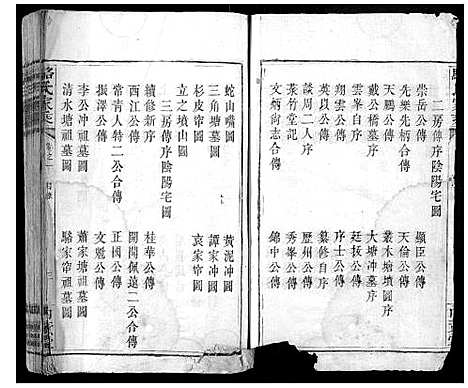 二房傳序陰陽宅圖
崇岳公傳 顯臣公傳
先樂先柄公傳 天倫公傳
天鵬公傳 叢木塘墳圖序
戴公橋墓序 大塘冲墓序
雲峯自序 廷拔公傳
翔雲公傳 序士公傳
談周二人序 纂修自序
英以公傳 歷州公傳
菉竹堂記 秀峯公傳
文炳尙志傳 錦中公傳
蛇山嘴圖
三角塘墓圖 黃泥冲圖
杉皮帘圖 譚家冲圖
立之墳山圖 袁家帘圖
三房傳序陰陽宅圖
續修新序
西江公傳 桂華公傳
常青人特二公合傳 開開佩遠二公合傳
振澤公傳 正國公傳
李公冲墓圖 文魁公傳
清水塘祖墓圖 蕭家塘祖墓圖
駱家帘祖墓圖
駱氏家乘 卷之一